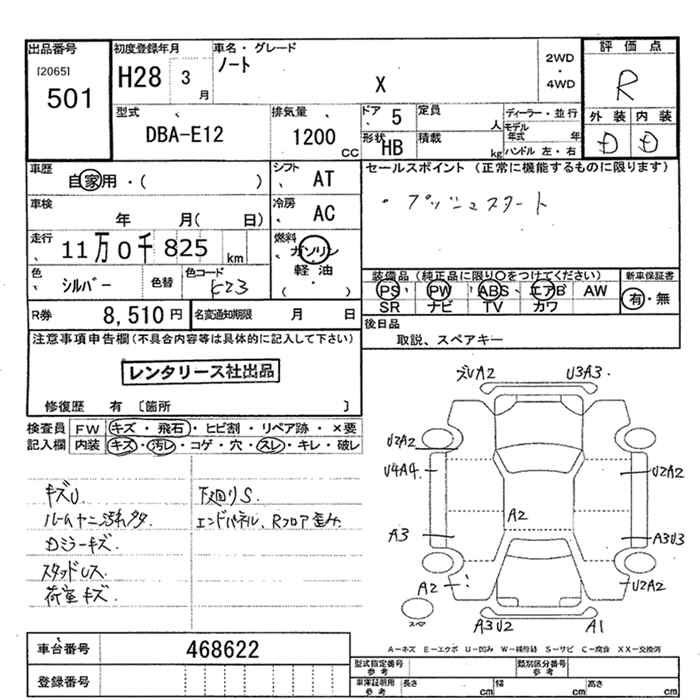 出品番号
[2065]
501
初度登録年月
H28 3月
車名・グレード
ノート
X
2WD
・
4WD
評価点
R
外装 内装
D D
型式
DBA-E12
排気量
1200 CC
ドア 5
定員 人
形状 HB
積載 kg
ディーラー・並行
モデル年式 年
ハンドル 左・右
車歴
自家用・( )
シフト AT
車検
年 月( 日)
冷房 AC
走行
11万0千825 km
燃料
ガソリン
軽油
( )
色
シルバー
色替
色コード
K23
R券 8,510円
名変通知期限 月 日
セールスポイント (正常に機能するものに限ります)
・プッシュスタート
装備品 (純正品に限り○をつけてください)
PS PW ABS エアB AW
SR ナビ TV カワ
新車保証書
有・無
後日品
取説、スペアキー
注意事項申告欄(不具合内容等は具体的に記入して下さい)
レンタリース社出品
修復歴 有 [箇所 ]
検査員記入欄
FW キズ・飛石・ヒビ割・リペア跡・×要
内装 キズ・汚レ・コゲ・穴・スレ・キレ・破レ
キズU
ルーム十二汚れ多タ
Dミラーキズ.
スタッドレス
荷室キズ
下廻りS.
エンドパネル、Rフロア歪み.
U3A3
U2A2
U4A4
U2A2
A2
A3
A3U3
A2
U2A2
スペア
A3U2
A1
A-キズ E-エクボ U-凹み W-補修跡 S-サビ C-腐食 XX-交換済
車台番号 468622
登録番号
型式指定番号 参考
類別区分番号 参考
車庫証明用 参考
長さ cm
幅 cm
高さ cm